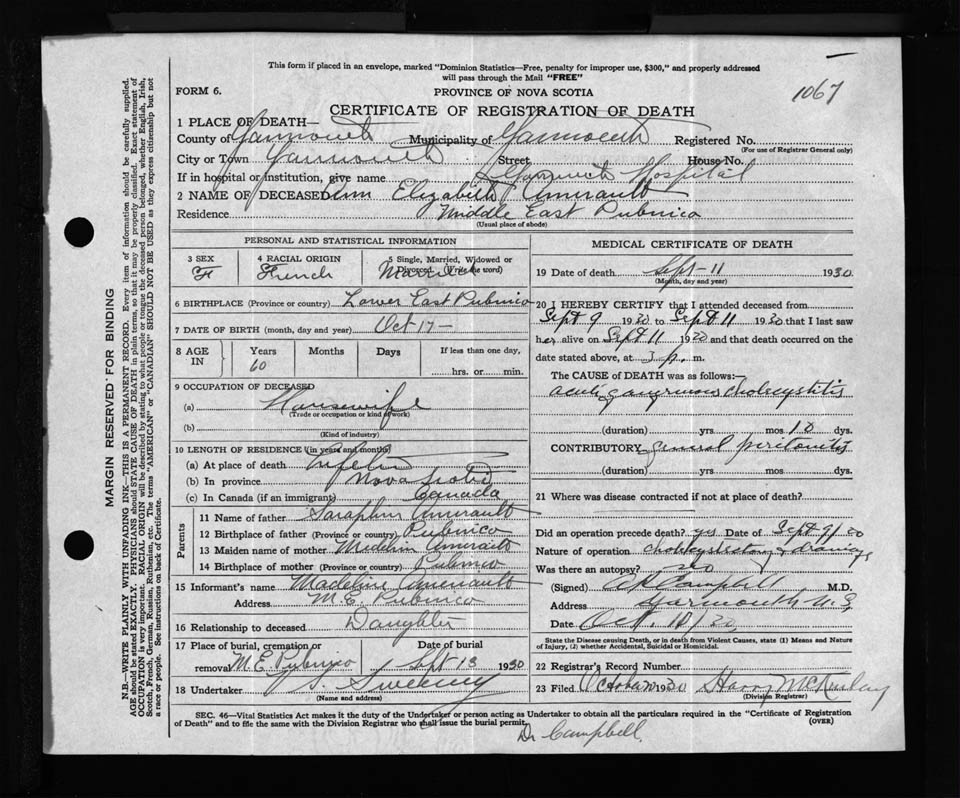 This form if placed in an envelope, marked "Dominion Statistics—Free, penalty for improper use, $300," and properly addressed
will pass through the Mail "FREE"
1067
FORM 6.
PROVINCE OF NOVA SCOTIA
CERTIFICATE OF REGISTRATION OF DEATH
1 PLACE OF DEATH—
County of Yarmouth Municipality of Yarmouth Registered No.
(For use of Registrar General only)
City or Town Yarmouth Street House No.
If in hospital or institution, give name Yarmouth Hospital
2 NAME OF DECEASED Ann Elizabeth Amirault
Residence Middle East Pubnico
(Usual place of abode)
PERSONAL AND STATISTICAL INFORMATION
3 SEX F
4 RACIAL ORIGIN French
5 Single, Married, Widowed or Divorced (Write the word) Married
6 BIRTHPLACE (Province or country) Lower East Pubnico
7 DATE OF BIRTH (month, day and year) Oct 17—
8 AGE IN Years 60 Months Days If less than one day, hrs. or min.
9 OCCUPATION OF DECEASED
(a) Housewife
(Trade or occupation or kind of work)
(b)
(Kind of industry)
10 LENGTH OF RESIDENCE (in years and months)
(a) At place of death
(b) In province Nova Scotia
(c) In Canada (if an immigrant) Canada
Parents
11 Name of father Saraphin Amirault
12 Birthplace of father (Province or country) Pubnico
13 Maiden name of mother Amirault
14 Birthplace of mother (Province or country) Pubnico
15 Informant's name Madeline Amirault
Address M. E. Pubnico
16 Relationship to deceased Daughter
17 Place of burial, cremation or removal M. E. Pubnico Date of burial Sept 13 1930
18 Undertaker V. S. Sweeny
(Name and address)
MEDICAL CERTIFICATE OF DEATH
19 Date of death Sept—11 1930
(Month, day and year)
20 I HEREBY CERTIFY that I attended deceased from
Sept 9 1930 to Sept 11 1930 that I last saw
her alive on Sept 11 1930 and that death occurred on the
date stated above, at p. m.
The CAUSE OF DEATH was as follows:—
acute gangrenous cholecystitis
(duration) yrs mos 10 dys.
CONTRIBUTORY general peritonitis
(duration) yrs mos dys.
21 Where was disease contracted if not at place of death?
Did an operation precede death? yes Date of Sept 9/30
Nature of operation cholecystectomy & drainage
Was there an autopsy? no
(Signed) Campbell M.D.
Address Yarmouth N. S.
Date Oct. 10/30
State the Disease causing Death, or in death from Violent Causes, state (1) Means and Nature
of Injury, (2) whether Accidental, Suicidal or Homicidal.
22 Registrar's Record Number
23 Filed October 1930 Harry McKinlay
(Division Registrar)
SEC. 46—Vital Statistics Act makes it the duty of the Undertaker or person acting as Undertaker to obtain all the particulars required in the "Certificate of Registration
of Death" and to file the same with the Division Registrar who shall issue the burial permit.
(OVER)
Dr Campbell
MARGIN RESERVED FOR BINDING
N.B.—WRITE PLAINLY WITH UNFADING INK—THIS IS A PERMANENT RECORD. Every item of information should be carefully supplied.
AGE should be stated EXACTLY. PHYSICIANS should STATE CAUSE OF DEATH in plain terms, so that it may be properly classified. Exact statement of
OCCUPATION is very important. RACIAL ORIGIN will be described by stating to what people or tongue the deceased person belonged, whether English, Irish,
Scotch, French, German, Russian, Ruthenian, etc. The terms "AMERICAN" or "CANADIAN" SHOULD NOT BE USED as they express citizenship but not
a race or people. See instructions on back of Certificate.